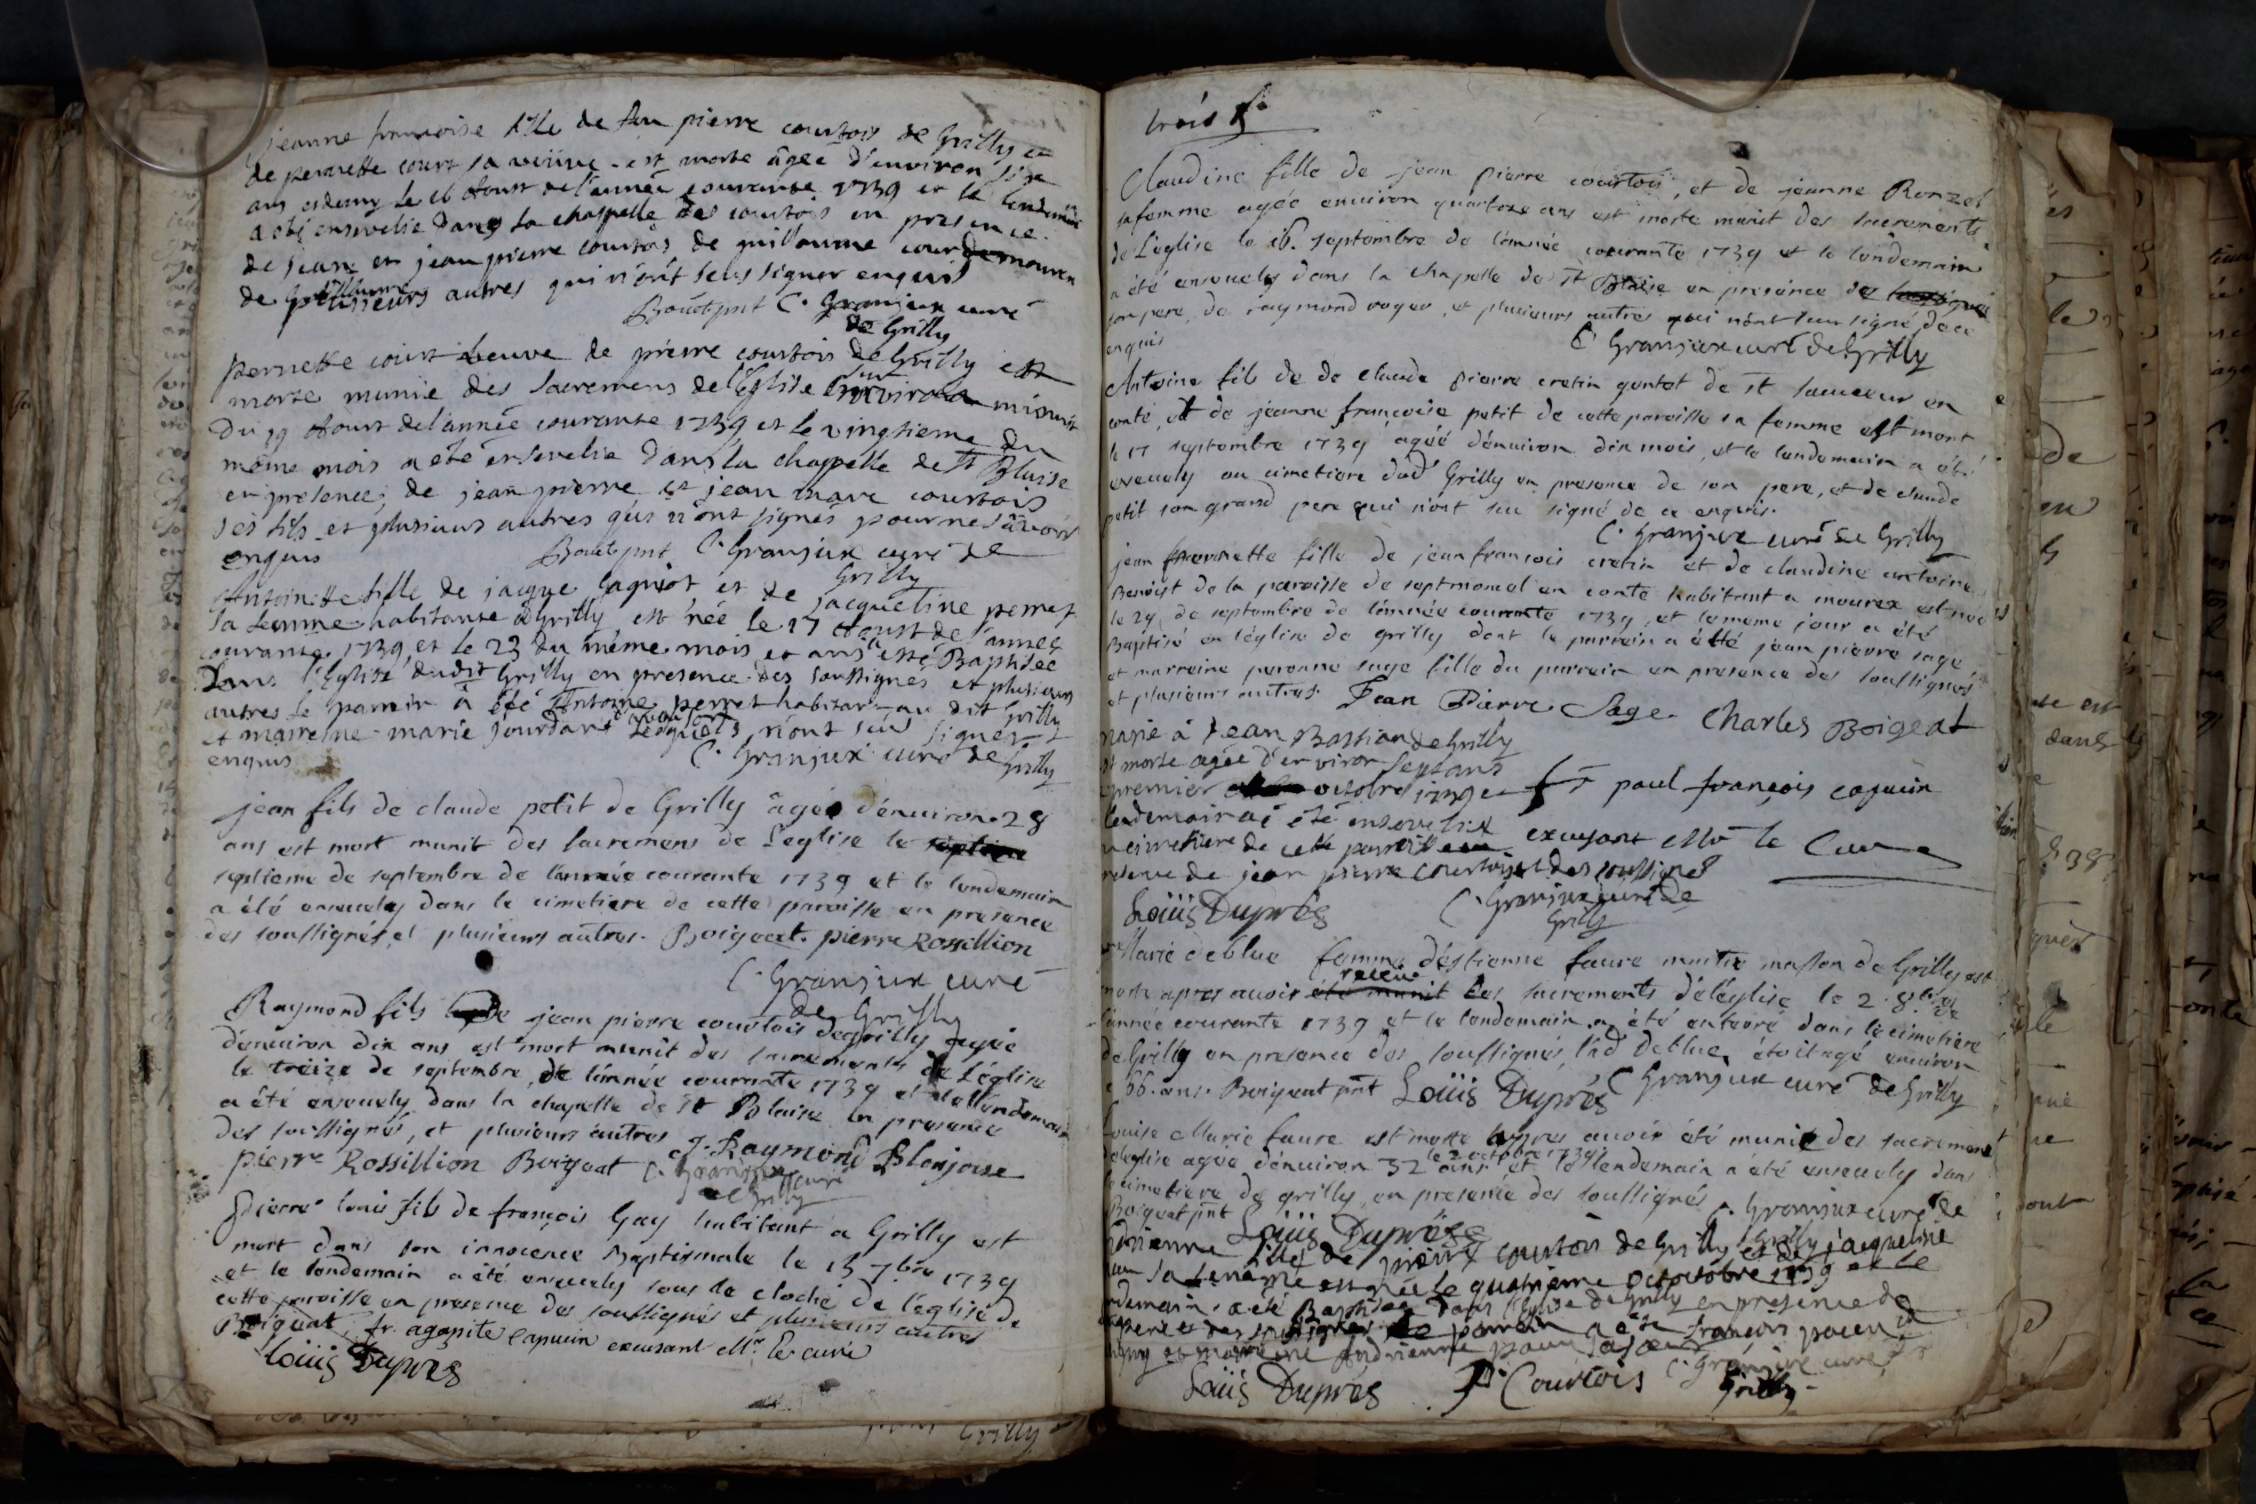 jeanne francoise fille de feu pierre courtois de Grilly et
de pernette court sa veuve est morte âgée d'environ
ans et demy le 16 Aoust de l'année courante 1739 et le lendemain
a été ensevelie dans la chappelle des courtois en presence
de jean et jean pierre courtois de guillaume cour
de plusieurs autres qui n'ont sceus signer enquis
Boüet pnt C. Granjux curé
de Grilly
Pernette court veuve de pierre courtois de Grilly est
morte munie des sacremens de l'Eglise sur minuit
Du 19 Aoust de l'année courante 1739 et le vingtieme du
même mois a été ensevelie dans la chappelle de St Blaise
en presence de jean pierre et jean marc courtois
ses fils et plusieurs autres qui n'ont signés pour ne sçavoir
enquis Bouet pnt C. Granjux curé de
Grilly
Antoinette fille de jacque Jaquiot et de jacqueline perret
sa femme habitante à Grilly est née le 17 Aoust de l'année
courante 1739 et le 23 du même mois et ans a esté Baptisée
Dans l'Eglise dudit Grilly en presence des soussignés et plusieurs
autres le parrain à été Antoine perret habitant au dit Grilly
et marreine marie jourdan lesquels n'ont sçü signer
enquis C. Granjux curé de Grilly
jean fils de claude petit de Grilly âgée d'enuiron 28
ans est mort munit des sacremens de l'eglise le
septieme de septembre de l'année courante 1739 et le lendemain
a été enseuely dans le cimetiere de cette paroisse en presence
des soussignés et plusieurs autres. Boigeat. pierre Rossillion
C. Granjux curé
de Grilly
Raymond fils de jean pierre courtois de grilly agée
d'enuiron dix ans est mort munit des sacrements de L'église
le treize de septembre de l'année courante 1739 et le lendemain
a été enseuely dans la chapelle de St Blaise en presence
des soussignés, et plusieurs autres J. Raymond Blanjose
pierre Rossillion Boigeat C. Granjux curé
de Grilly
pierre louis fils de françois Gay habitant a Grilly est
mort dans son innocence Baptismale le 15 7bre 1739
et le lendemain a été enseuely sous le cloché de l'église de
cette paroisse en presence des soussignés et plusieurs autres
Boigeat fr. agapite capucin excusant Mr le curé
Loüis Duprés
trois f.
Claudine fille de jean pierre courtois, et de jeanne Ronzel
sa femme agée enuiron quatorze ans est morte munit des sacrements
de L'église le 16. septembre de l'année courante 1739 et le lendemain
a été enseuely dans la chapelle de St Blaise en presence de
son pere, de raymond roger, et plusieurs autres qui n'ont sceu signé de ce
enquis C. Granjux curé de Grilly
Antoine fils de de claude pierre cretin gentet de St
conté, et de jeanne françoise petit de cette paroisse sa femme est mort
le 17 septembre 1739 agée d'enuiron dix mois, et le lendemain a été
eneuely au cimetiere dud Grilly en presence de son pere, et de claude
petit son grand pere qui n'ont sceu signé de ce enquis.
C. Granjux curé de Grilly
jean pernette fille de jean françois cretin et de claudine antoine
Benoist de la paroisse de septmoncel en conté habitant a mourex est née
le 29 de septembre de l'année courante 1739, et le meme jour a été
Baptisé en l'église de grilly dont le parrain a été jean pierre sage
et marreine peronne sage fille du parrain en presence des soussignés
et plusieurs autres. Jean Pierre Sage. Charles Boigeat
marie à Jean Bastian de Grilly
est morte agée d'environ sept ans
premier octobre 1739 et fr paul françois capucin
lendemain a été ensevelie excusant Mr le Curé
cimetiere de cette paroisse
presence de jean pierre courtois et des soussignés
Loüis Duprés C. Granjux curé de
Grilly
Marie deblue femme d'éstienne faure maitre masson de Grilly est
morte apres auoir receue les sacrements de l'église le 2. 8bre de
l'année courante 1739 et le lendemain a été enterré dans le cimetiere
de Grilly en presence des soussignés, lad Deblue étoit agé enuiron
66. ans. Boigeat pnt Loüis Duprés C. Granjux curé de Grilly
Louise Marie faure est morte apres auoir été munie des sacrement
de l'église agée d'enuiron 32 ans le 2 octobre 1739 et le lendemain a été enseuely dans
le cimetiere de grilly en presence des soussignés C. Granjux curé de
Boigeat pnt Loüis Duprés Grilly
Andrienne fille de pierre courtois de Grilly et de jacqueline
sa femme est née le quatrieme octobre 1739 et le
lendemain a été Baptisée dans l'Eglise de Grilly en presence de
pere et des soussignés le parrain a été françois
et marreine Andrienne sa soeur C. Granjux curé de
Loüis Duprés P. Courtois Grilly